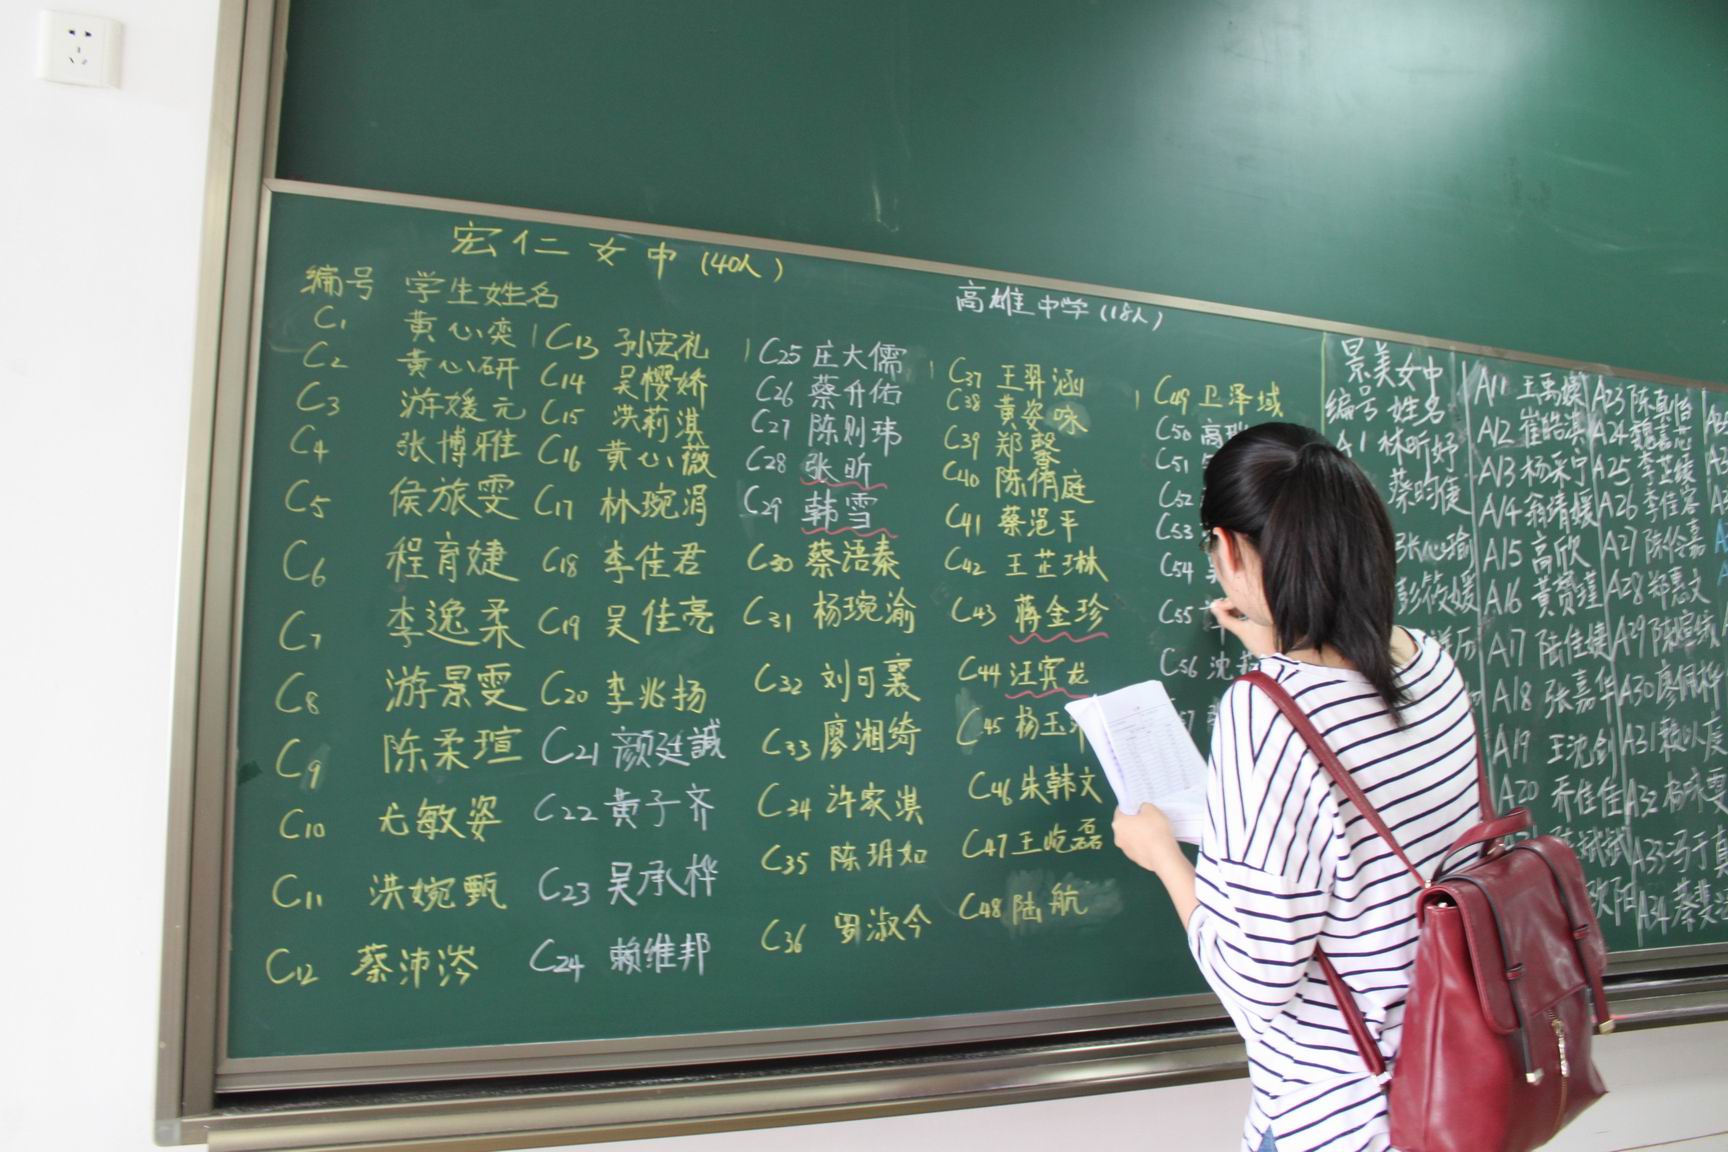 宏仁女中(40人)
编号 学生姓名
C1 黄心奕
C2 黄心研
C3 游媛元
C4 张博雅
C5 侯旅雯
C6 程育婕
C7 李逸柔
C8 游景雯
C9 陈柔瑄
C10 尤敏姿
C11 洪婉甄
C12 蔡沛涔
C13 孙宏礼
C14 吴樱娇
C15 洪莉淇
C16 黄心薇
C17 林琬涓
C18 李佳君
C19 吴佳亮
C20 李兆扬
C21 颜廷誠
C22 黄子齐
C23 吴承桦
C24 赖维邦
高雄中学(18人)
C25 庄大儒
C26 蔡升佑
C27 陈则玮
C28 张昕
C29 韩雪
C30 蔡浯秦
C31 杨琬渝
C32 刘可襄
C33 廖湘绮
C34 许家淇
C35 陈玥如
C36 罗淑今
C37 王羿涵
C38 黄姿咏
C39 郑馨
C40 陈俏庭
C41 蔡浥平
C42 王芷琳
C43 蒋金珍
C44 汪宾龙
C45 杨玉
C46 朱韩文
C47 王屹磊
C48 陆航
C49 卫泽域
C50 高
C51
C52
C53
C54
C55
C56 沈
景美女中
编号 姓名
A1 林昕妤
蔡昀倢
张心瑜
彭筱媛
A11 王禹
A12 崔皓淇
A13 杨采宁
A14 翁靖媛
A15 高欣
A16 黄赞瑾
A17 陆佳婕
A18 张嘉华
A19 王沈剑
A20 乔佳佳
A23 陈
A24 魏嘉芯
A25 李芷绫
A26 李佳容
A27 陈伶嘉
A28 郑惠文
A29 陈
A30 廖佩
A31 赖以庭
A32 杨咏雯
A33 冯于真
A34 蔡